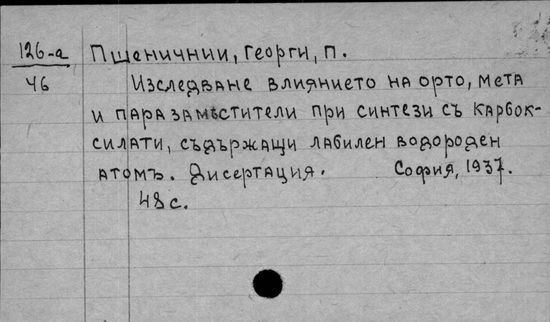 126-а Пшеничнии, Георги, П.
46 Изследване влиянието на орто, мета
и пара замѣстители при синтези съ карбок-
силати, съдържащи лабилен водороден
атомъ. Дисертация. София, 1937.
48 с.